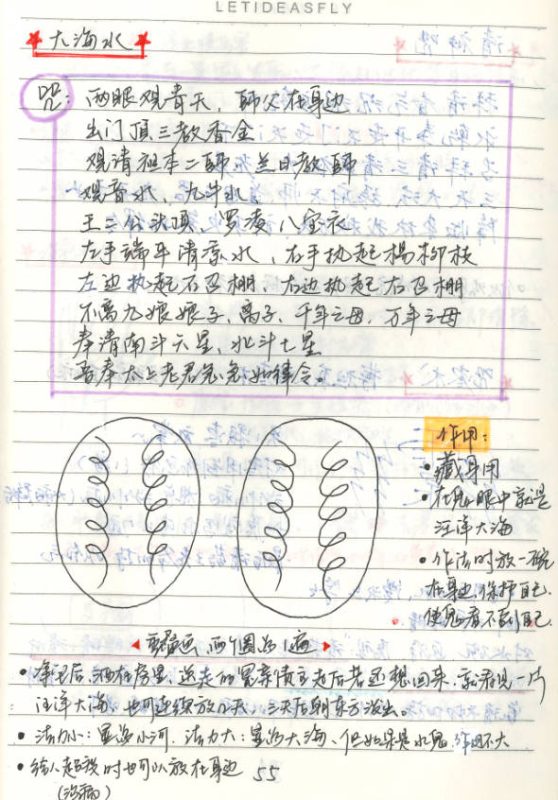 LETIDEASFLY
大海水
咒: 两眼观青天, 师父在身边
出门顶三教香金
观请祖本二师 兰日教师
观音水, 九牛水
王二公头顶, 罗凌八宝衣
左手端平清凉水, 右手执起杨柳枝
左边执起石召棚 右边执起右召棚
不离九娘娘子, 离子, 千年之母, 万年之母
奉请南斗六星, 北斗七星
吾奉太上老君急急如律令。
作用:
• 藏身用
• 在鬼眼中就是
汪洋大海
• 作法时放一碗
在身边, 保护自己,
使鬼看不到自己.
遍, 两个圈为1遍
• 净宅后, 洒在房里, 送走的冤亲债主走后若还想回来, 就看见一片
汪洋大海, 也可连续放几天, 三天后朝东方泼出。
• 法力小: 显为小河, 法力大: 显为大海, 但如果是水鬼, 作用不大
• 给人超拔时也可以放在身边
(治病)
55